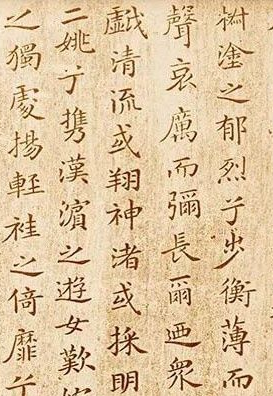 椒塗之郁烈兮步衡薄而
聲哀厲而彌長爾迺衆
戯清流或翔神渚或採明
二姚兮携漢濱之遊女歎
之獨處揚輕袿之倚靡兮